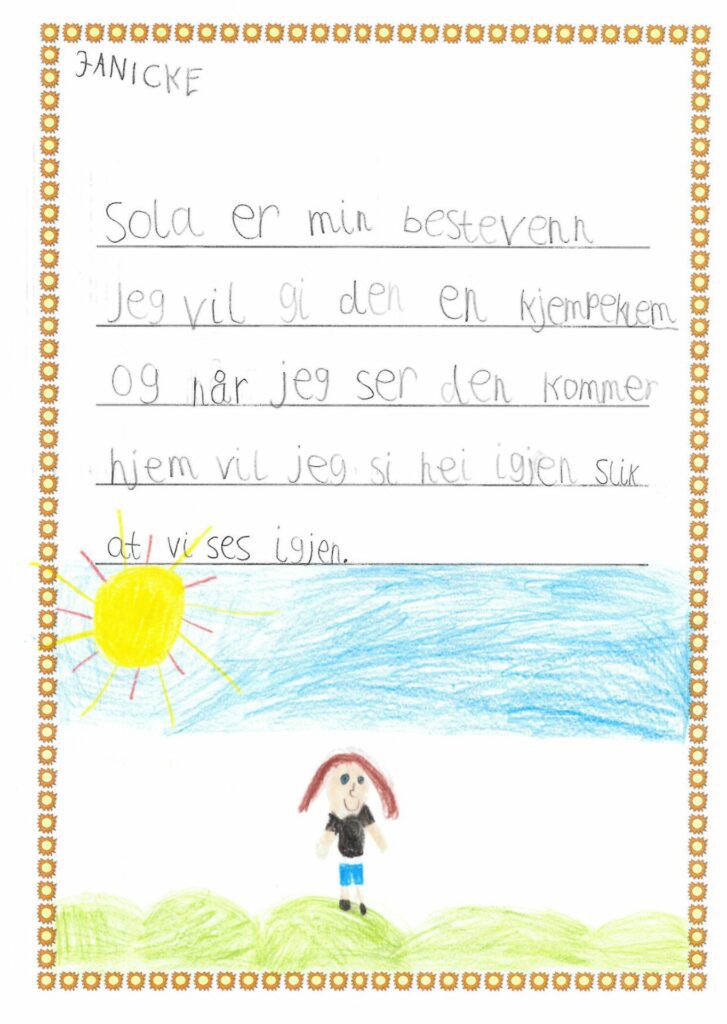 JANICKE
Sola er min bestevenn
jeg vil gi den en kjempeklem
og når jeg ser den kommer
hjem vil jeg si hei igjen slik
at vi ses igjen.